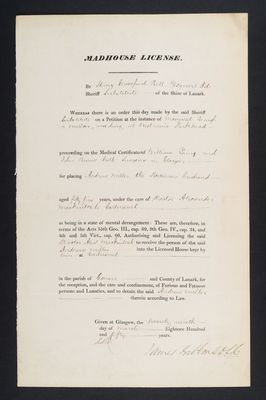 MADHOUSE LICENSE.
By Henry Glassford Bell Esquire Ad
Sheriff Substitute of the Shire of Lanark.
WHEREAS there is an order this day made by the said Sheriff
Substitute on a Petition at the instance of Margaret
residing at
proceeding on the Medical Certificate of William Young and
John Surgeons in Glasgow
for placing Andrew Miller, the Husband
aged fifty five years, under the care of Doctor Alexander
Mackintosh
as being in a state of mental derangement: These are, therefore, in
terms of the Acts 55th Geo. III., cap. 69, 9th Geo. IV., cap. 34, and
4th and 5th Vict., cap. 60, Authorising and Licensing the said
Doctor Alexr Mackintosh to receive the person of the said
Andrew Miller into the Licensed House kept by
him at Gartnavel
in the parish of Govan and County of Lanark, for
the reception, and the care and confinement, of Furious and Fatuous
persons and Lunatics, and to detain the said Andrew Miller
therein according to Law.
Given at Glasgow, the twenty ninth
day of March Eighteen Hundred
and fifty years.